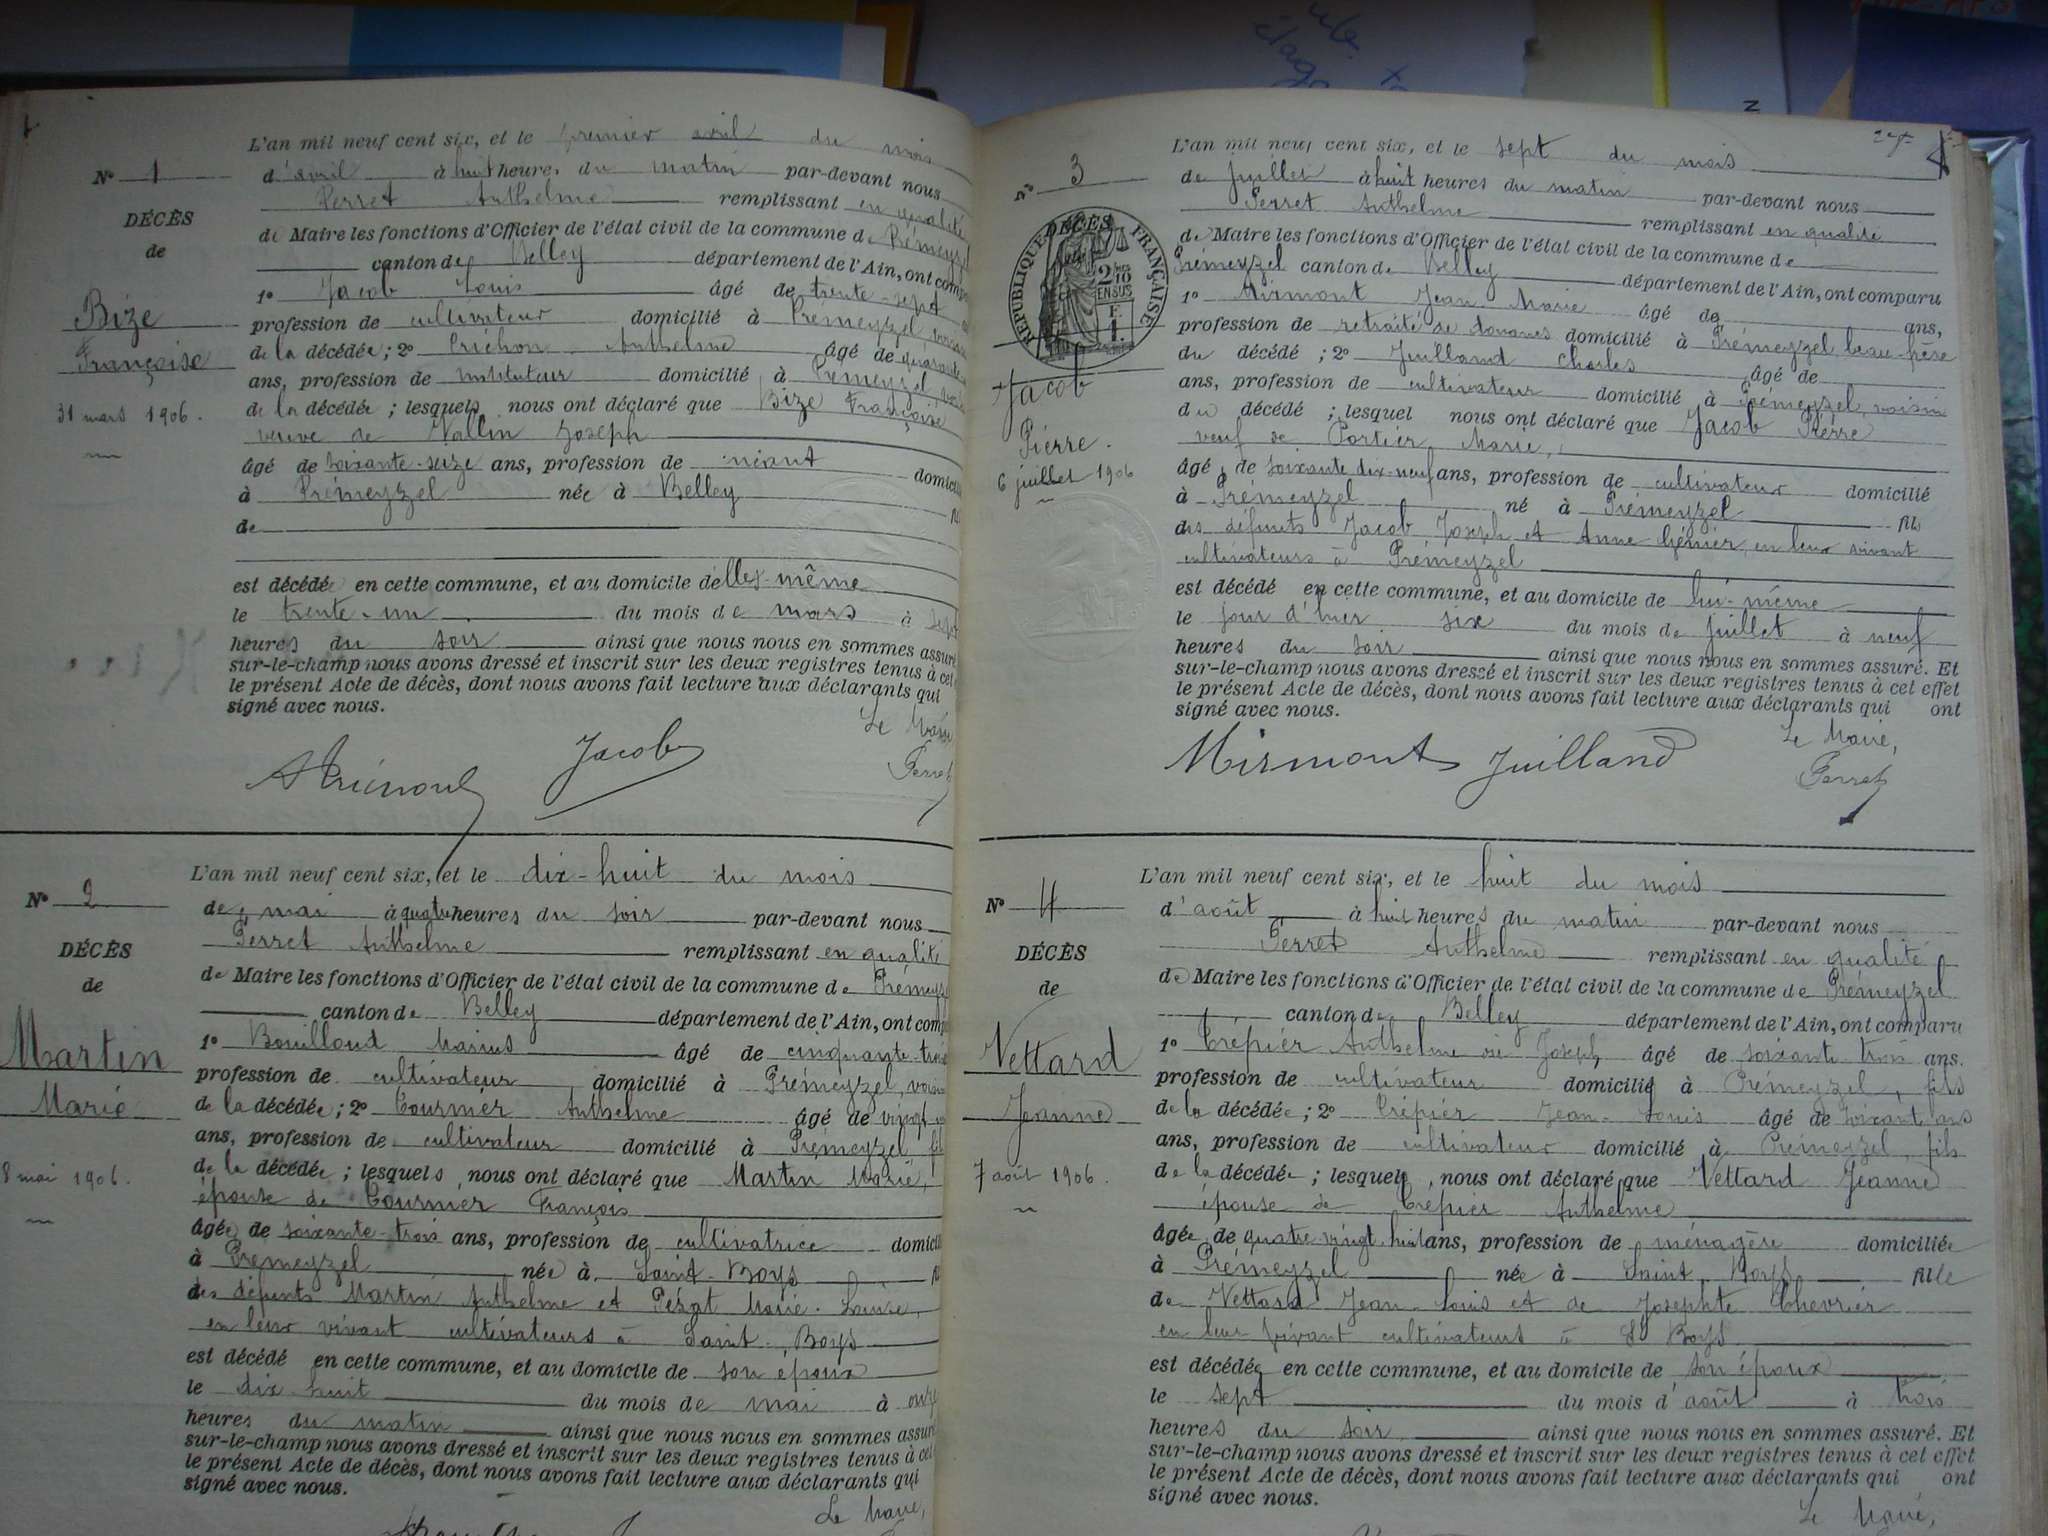 N° 1
DÉCÈS
de
Bize
Françoise
31 mars 1906.
L'an mil neuf cent six, et le premier avril du mois
d'avril à huit heures du matin par-devant nous
Perret Anthelme remplissant en qualité
de Maire les fonctions d'Officier de l'état civil de la commune de Prémeyzel
canton de Belley département de l'Ain, ont comp
1° Jacob Louis âgé de trente-sept
profession de cultivateur domicilié à Prémeyzel, voisin
de la décédée; 2° Anthelme âgé de quarante
ans, profession de instituteur domicilié à Prémeyzel,
de la décédée; lesquels nous ont déclaré que Bize Françoise
veuve de Vallin Joseph
âgé de soixante-seize ans, profession de néant domicili
à Prémeyzel née à Belley
de
est décédée en cette commune, et au domicile d'elle-même
le trente-un du mois de mars à sept
heures du soir ainsi que nous nous en sommes assuré
sur-le-champ nous avons dressé et inscrit sur les deux registres tenus à cet
le présent Acte de décès, dont nous avons fait lecture aux déclarants qui
signé avec nous.
Le Maire
Jacob
Perret
N° 2
DÉCÈS
de
Martin
Marie
8 mai 1906.
L'an mil neuf cent six, et le dix-huit du mois
de mai à quatre heures du soir par-devant nous
Perret Anthelme remplissant en qualité
de Maire les fonctions d'Officier de l'état civil de la commune de Prémeyze
canton de Belley département de l'Ain, ont comp
1° Bouilloud Marius âgé de cinquante-trois
profession de cultivateur domicilié à Prémeyzel, voisin
de la décédée; 2° Tournier Anthelme âgé de vingt
ans, profession de cultivateur domicilié à Prémeyzel fils
de la décédée; lesquels nous ont déclaré que Martin Marie,
épouse de Tournier François
âgée de soixante-trois ans, profession de cultivatrice domicil
à Prémeyzel née à Saint-Boys
des défunts Martin Anthelme et Marie-Louise,
en leur vivant cultivateurs à Saint-Boys
est décédé en cette commune, et au domicile de son époux
le dix-huit du mois de mai à onze
heures du matin ainsi que nous nous en sommes assuré
sur-le-champ nous avons dressé et inscrit sur les deux registres tenus à cet
le présent Acte de décès, dont nous avons fait lecture aux déclarants qui
signé avec nous.
Le Maire,
N° 3
RÉPUBLIQUE FRANÇAISE
DÉCÈS
2/10
EN SUS
F.
1.
Jacob
Pierre.
6 juillet 1906
L'an mil neuf cent six, et le sept du mois
de Juillet à huit heures du matin par-devant nous
Perret Anthelme remplissant en qualité
de Maire les fonctions d'Officier de l'état civil de la commune de
Prémeyzel canton de Belley département de l'Ain, ont comparu
1° Mirmont Jean Marie âgé de ans,
profession de retraité de douanes domicilié à Prémeyzel beau-frère
du décédé; 2° Juilland Charles âgé de
ans, profession de cultivateur domicilié à Prémeyzel, voisin
du décédé; lesquel nous ont déclaré que Jacob Pierre
veuf de Portier Marie,
âgé de soixante dix-neuf ans, profession de cultivateur domicilié
à Prémeyzel né à Prémeyzel fils
des défunts Jacob Joseph et Anne en leur vivant
cultivateurs à Prémeyzel
est décédé en cette commune, et au domicile de lui-même
le jour d'hier six du mois de Juillet à neuf
heures du soir ainsi que nous nous en sommes assuré. Et
sur-le-champ nous avons dressé et inscrit sur les deux registres tenus à cet effet
le présent Acte de décès, dont nous avons fait lecture aux déclarants qui ont
signé avec nous.
Le Maire,
Mirmont Juilland
Perret
N° 4
DÉCÈS
de
Vettard
Jeanne
7 août 1906.
L'an mil neuf cent six, et le huit du mois
d'août à huit heures du matin par-devant nous
Perret Anthelme remplissant en qualité
de Maire les fonctions d'Officier de l'état civil de la commune de Prémeyzel
canton de Belley département de l'Ain, ont comparu
1° Trépier Anthelme ou Joseph âgé de soixante trois ans.
profession de cultivateur domicilié à Prémeyzel, fils
de la décédée; 2° Trépier Jean-Louis âgé de soixante ans
ans, profession de cultivateur domicilié à Prémeyzel, fils
de la décédée; lesquels nous ont déclaré que Vettard Jeanne
épouse de Trépier Anthelme
âgée de quatre-vingt-huit ans, profession de ménagère domiciliée
à Prémeyzel née à Saint Boys fille
de Vettard Jean-Louis et de Josephte Chevrier
en leur vivant cultivateurs à St Boys
est décédée en cette commune, et au domicile de son époux
le sept du mois d'août à trois
heures du soir ainsi que nous nous en sommes assuré. Et
sur-le-champ nous avons dressé et inscrit sur les deux registres tenus à cet effet
le présent Acte de décès, dont nous avons fait lecture aux déclarants qui ont
signé avec nous.
Le Maire,